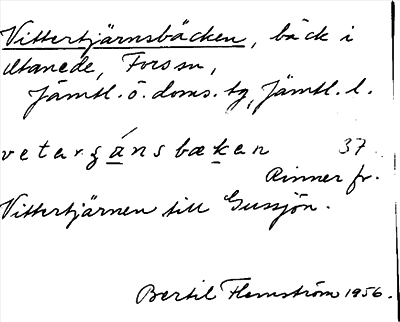 Vittertjärnsbäcken, bäck i
Utanede, Fors sn,
Jämtl. ö. doms. tg, Jämtl. l.
vetargánsbækan 37
Rinner fr.
Vittertjärnen till Gussjön.
Bertil Flemström 1956.